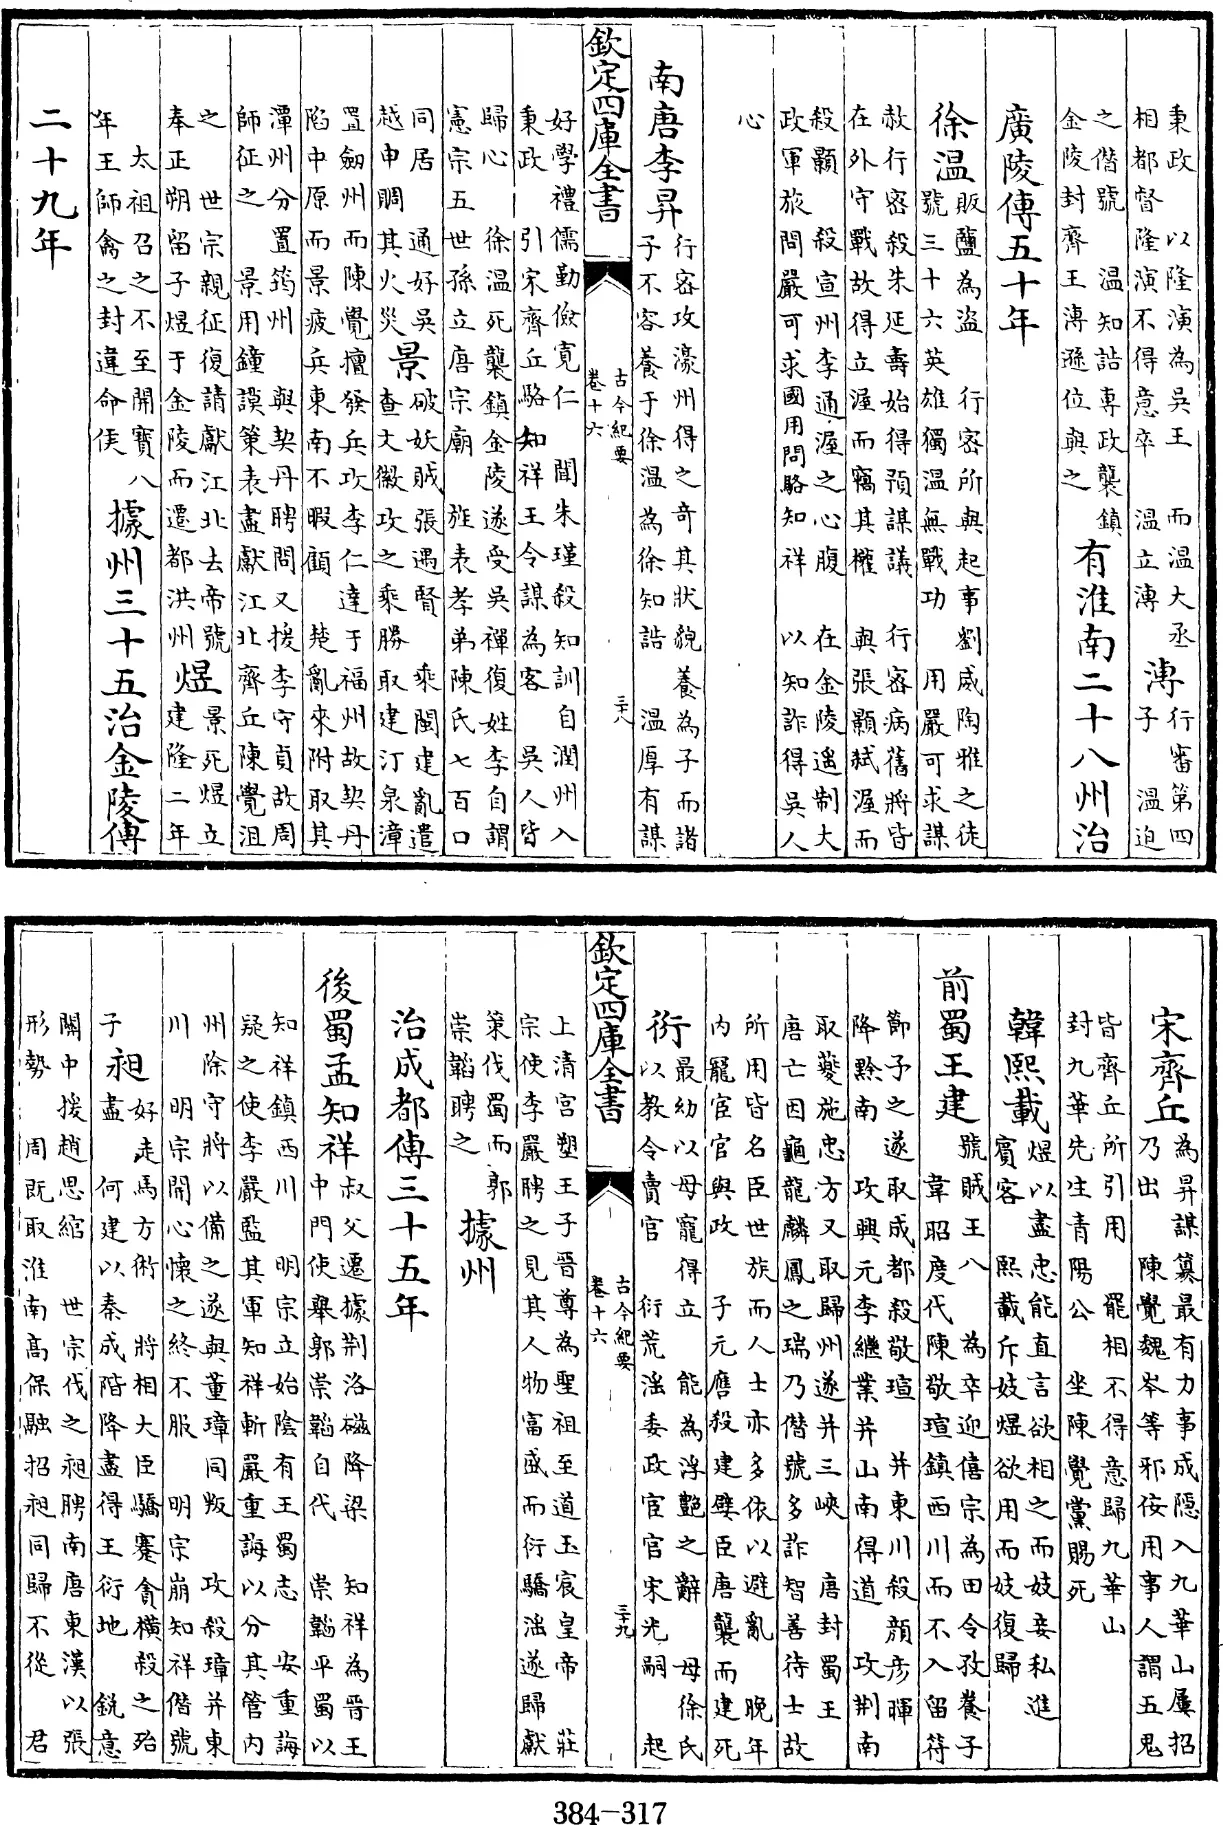 秉政　以隆演為吳王　而温大丞
相都督隆演不得意卒　温立溥
溥
行審第四
子　温迫
之僭號　温知誥專政襲鎮
金陵封齊王溥遜位與之
有淮南二十八州治
廣陵傳五十年
徐温
販鹽為盗　行密所與起事劉威陶雅之徒
號三十六英雄獨温無戰功　用嚴可求謀
赦行密殺朱延壽始得預謀議　行密病舊將皆
在外守戰故得立渥而竊其權　與張顥弒渥而
殺顥　殺宣州李通渥之心腹　在金陵遥制大
政軍旅問嚴可求國用問駱知祥　以知詐得吳人
心
南唐李昇
行密攻濠州得之奇其狀貌養為子而諸
子不容養于徐温為徐知誥　温厚有謀
欽定四庫全書
古今紀要
卷十六
三十八
好學禮儒勤儉寛仁　聞朱瑾殺知訓自潤州入
秉政　引宋齊丘駱知祥王令謀為客　吳人皆
歸心　徐温死襲鎮金陵遂受吳禪復姓李自謂
憲宗五世孫立唐宗廟　旌表孝弟陳氏七百口
同居　通好吳
越申賙其火災
景
破妖賊張遇賢　乘閩建亂遣
查文徽攻之乘勝取建汀泉漳
置劒州而陳覺擅發兵攻李仁達于福州故契丹
陷中原而景疲兵東南不暇顧　楚亂來附取其
潭州分置筠州　與契丹聘問又援李守貞故周
師征之　景用鐘謨策表盡獻江北齊丘陳覺沮
之　世宗親征復請獻江北去帝號
奉正朔留子煜于金陵而遷都洪州
煜
景死煜立
建隆二年
太祖召之不至開寶八
年王師禽之封違命侯
據州三十五治金陵傳
二十九年
宋齊丘
為昇謀簒最有力事成隠入九華山屢招
乃出　陳覺魏岑等邪佞用事人謂五鬼
皆齊丘所引用　罷相不得意歸九華山
封九華先生青陽公　坐陳覺黨賜死
韓熙載
煜以盡忠能直言欲相之而妓妾私進
賓客　熙載斥妓煜欲用而妓復歸
前蜀王建
號賊王八　為卒迎僖宗為田令孜養子
韋昭度代陳敬瑄鎮西川而不入留符
節予之遂取成都殺敬瑄　并東川殺顔彦暉
降黔南　攻興元李繼業并山南得道　攻荆南
取夔施忠方又取歸州遂并三峽　唐封蜀王
唐亡因龜龍麟鳳之瑞乃僭號多詐智善待士故
所用皆名臣世族而人士亦多依以避亂　晩年
内寵宦官與政　子元膺殺建嬖臣唐襲而建死
衍
最幼以母寵得立　能為浮艶之辭　母徐氏
以教令賣官　衍荒滛委政宦官宋光嗣　起
欽定四庫全書
古今紀要
卷十六
三十九
上清宫塑王子晉尊為聖祖至道玉宸皇帝　莊
宗使李嚴聘之見其人物富盛而衍驕滛遂歸獻
策伐蜀而郭
崇韜聘之
據州
治成都傳三十五年
後蜀孟知祥
叔父遷據荆洛磁降梁　知祥為晉王
中門使舉郭崇韜自代　崇韜平蜀以
知祥鎮西川　明宗立始陰有王蜀志　安重誨
疑之使李嚴監其軍知祥斬嚴重誨以分其管内
州除守將以備之遂與董璋同叛　攻殺璋并東
川　明宗開心懷之終不服　明宗崩知祥僭號
子
昶
好走馬方術　將相大臣驕蹇貪横殺之殆
盡　何建以秦成階降盡得王衍地　鋭意
關中援趙思綰　世宗伐之昶聘南唐東漢以張
形勢　周既取淮南高保融招昶同歸不從　君
384-317